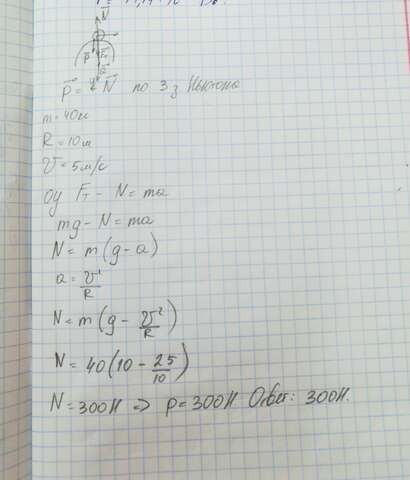 N
P
P = N по 3 з Ньютона
m = 40кг
R = 10м
V = 5м/с
оу Fт - N = ma
mg - N = ma
N = m(g - a)
a = V²/R
N = m(g - V²/R)
N = 40(10 - 25/10)
N = 300Н => p = 300Н Ответ: 300Н.